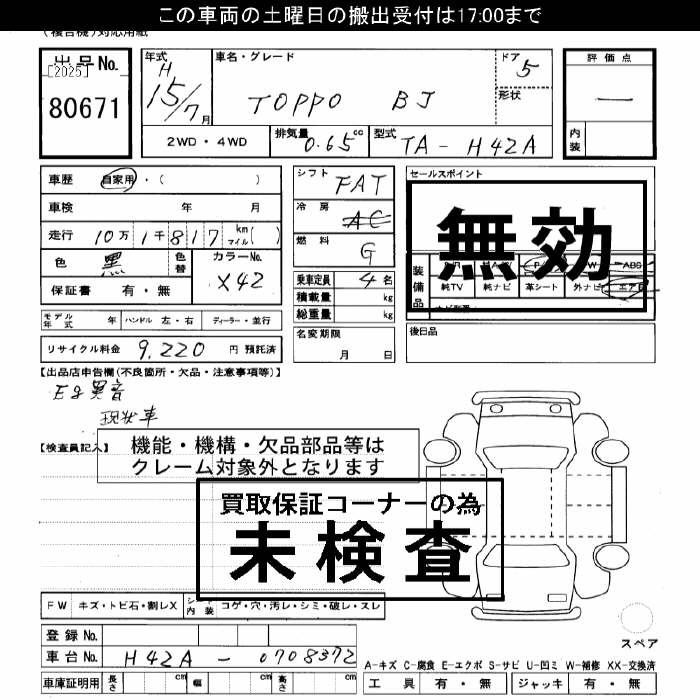 この車両の土曜日の搬出受付は17:00まで
(複合機)対応用紙
出品No.
[2025]
80671
年式
H
15/7月
車名・グレード
TOPPO BJ
ドア
5
形状
評価点
—
内装
2WD・4WD
排気量
0.65cc
型式
TA-H42A
車歴 自家用・( )
車検 年 月
走行 10万1千817 km マイル( )
色 黒 色替
カラーNo.
X42
保証書 有・無
シフト FAT
冷房 AC
燃料 G
乗車定員 4名
積載量 kg
総重量 kg
セールスポイント
無効
装備品
ABS
純TV 純ナビ 革シート 外ナビ エアB
モデル年式 年 ハンドル 左・右 ディーラー・並行
名変期限
月 日
後日品
リサイクル料金 9,220 円 預託済
【出品店申告欄(不良箇所・欠品・注意事項等)】
Eg異音
現状車
【検査員記入】
機能・機構・欠品部品等は
クレーム対象外となります
買取保証コーナーの為
未検査
FW キズ・トビ石・割レX シート内装 コゲ・穴・汚レ・シミ・破レ・スレ
スペア
登録No.
車台No. H42A-0708372
A-キズ C-腐食 E-エクボ S-サビ U-凹ミ W-補修 XX-交換済
車庫証明用 長さ cm 幅 cm 高さ cm
工具 有・無 ジャッキ 有・無